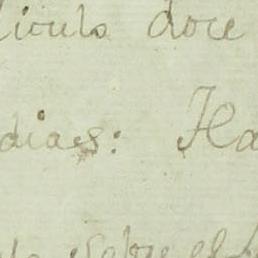 ticulo doce
dias: Ha
sobre el